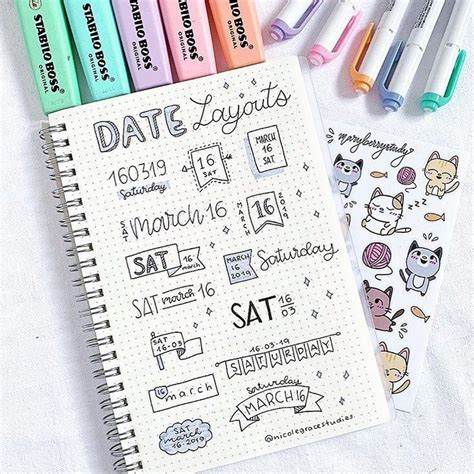 STABILO BOSS ORIGINAL
STABILO BOSS ORIGINAL
STABILO BOSS ORIGINAL
STABILO BOSS ORIGINAL
STABILO BOSS ORIGINAL
DATE Layouts
@maryberrystudy
160319
Saturday
16
SAT
MARCH
16
SAT
SAT march 16
MARCH
16
SAT
16
march
MARCH
16
2019
Saturday
SAT march 16
SAT 16
03
SAT
16·03
16·03·19
SATURDAY
16
march
Saturday
MARCH 16
SAT
march 16
2019
@nicolegracestudies
zzz